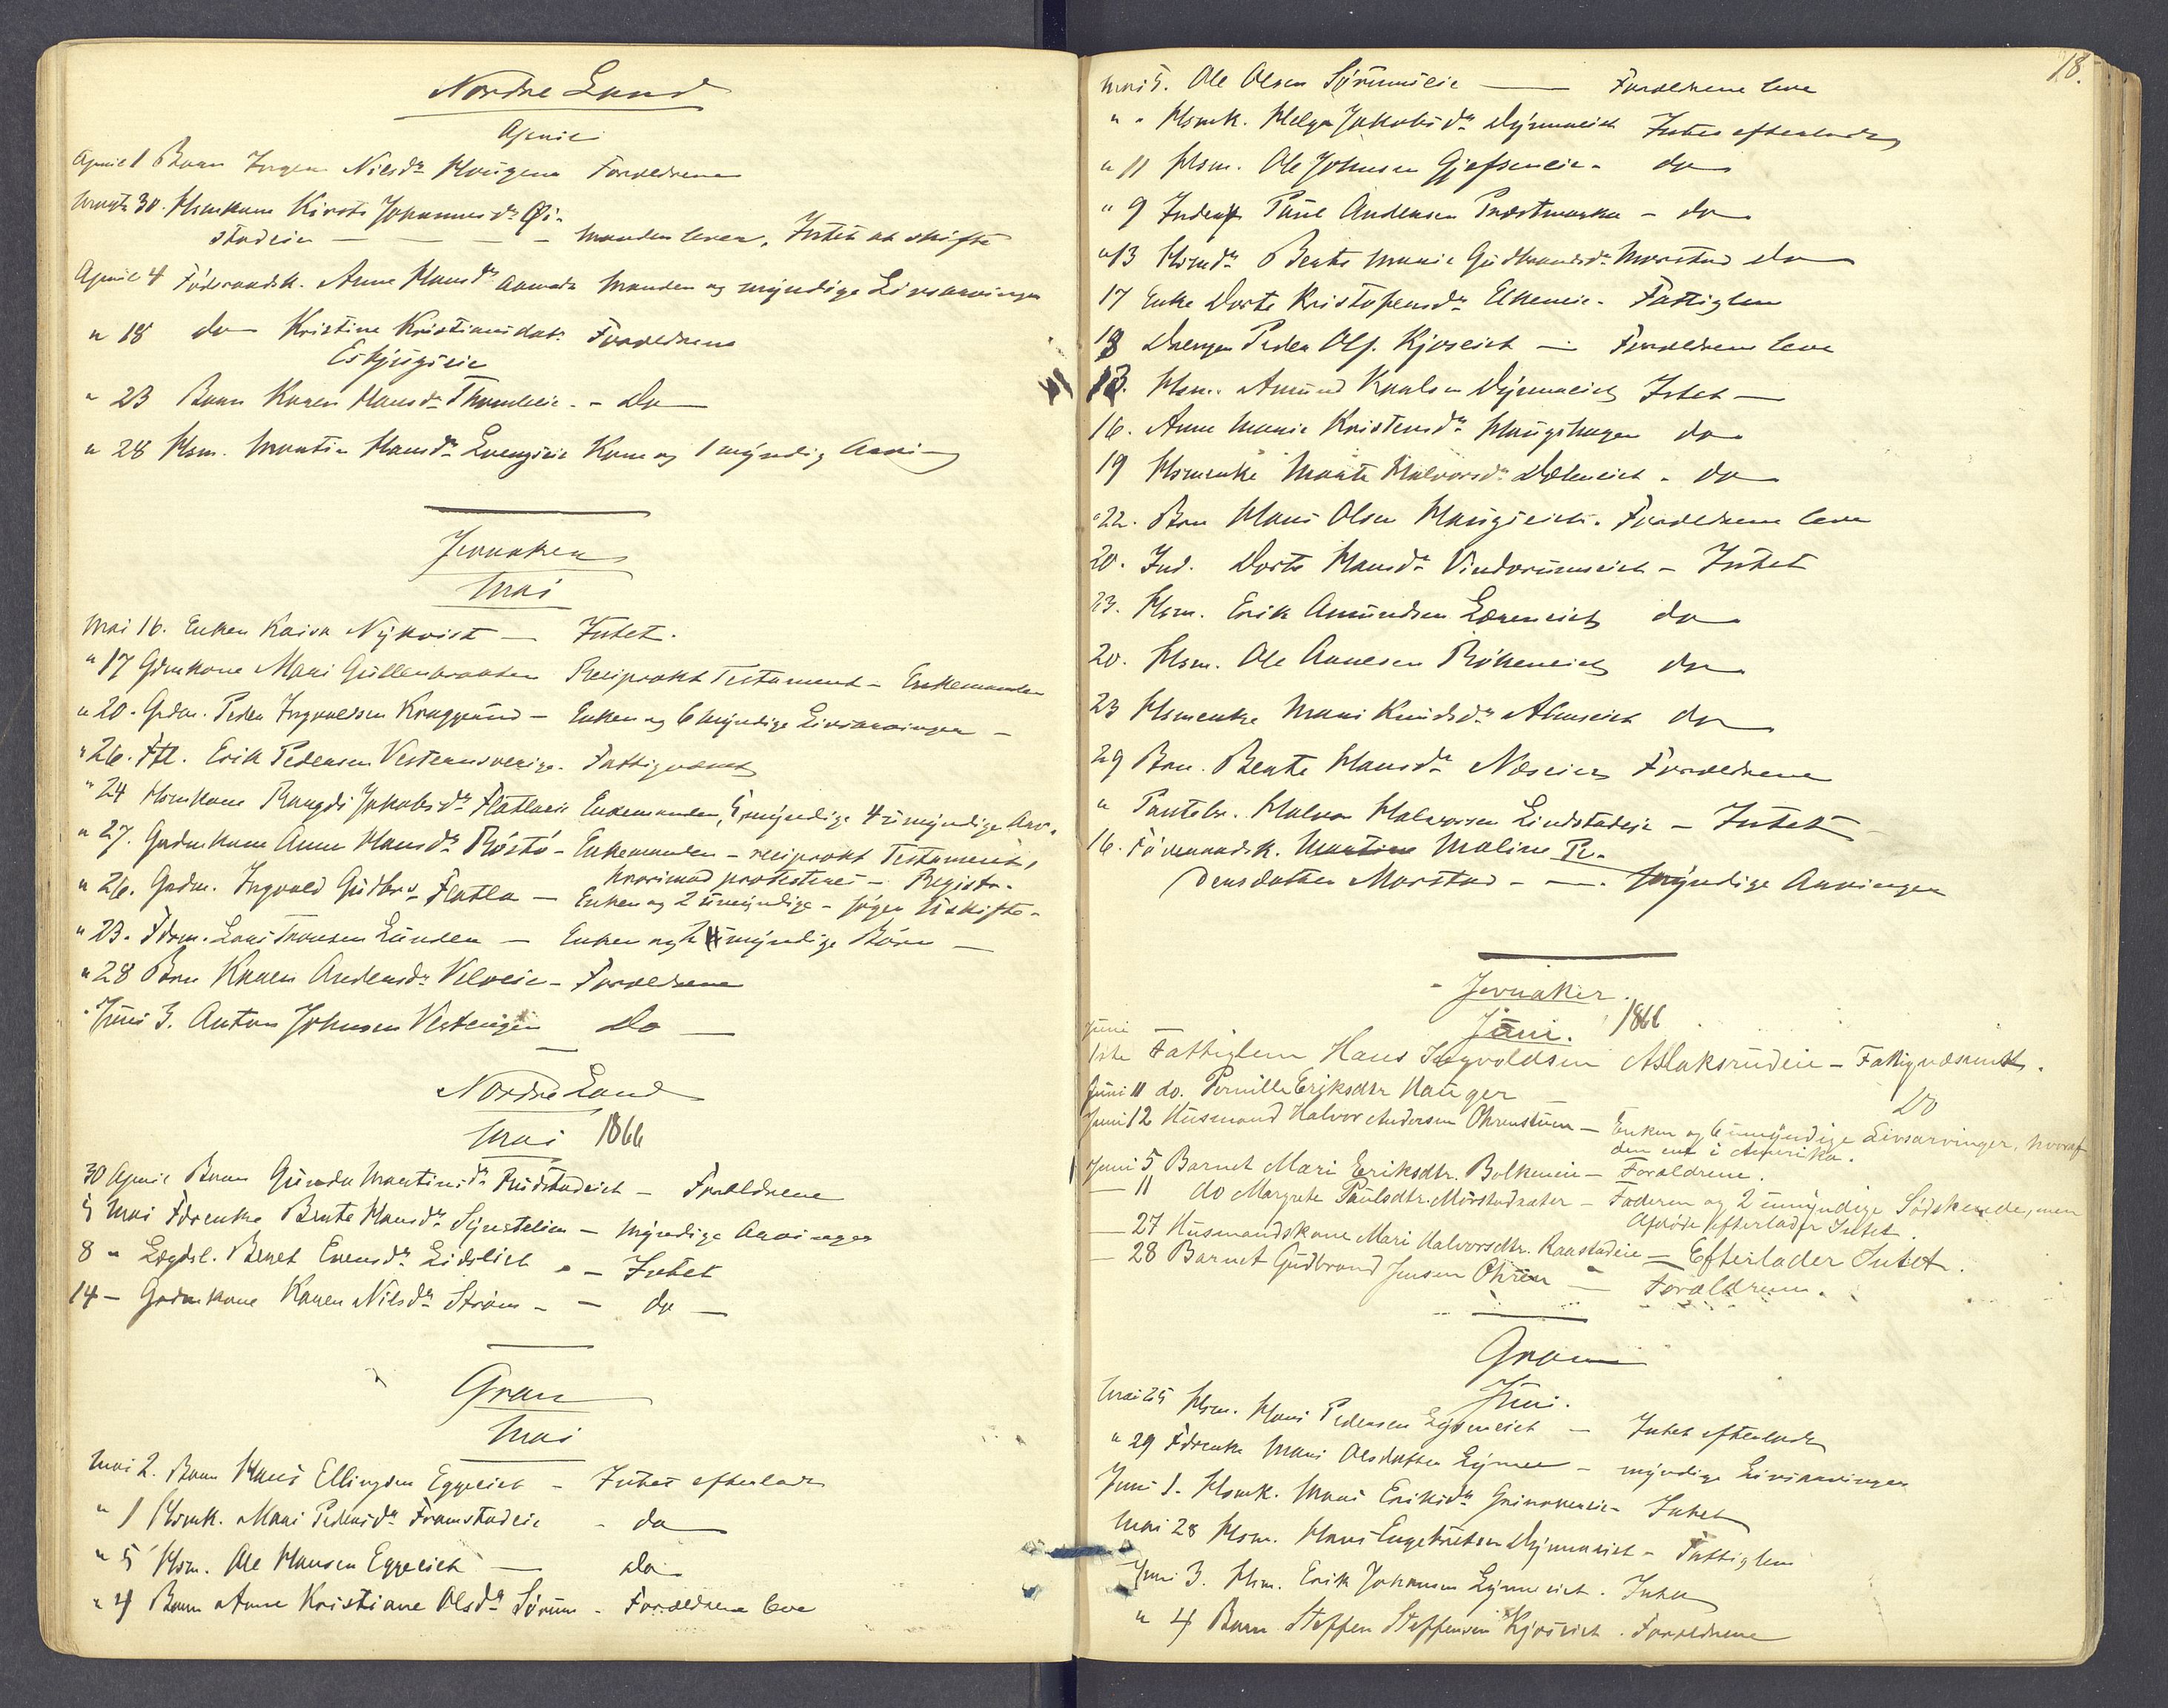 Nordre Land
April
April 1 Barn Inger Nilsdr Haugene Forældrene
Marts 30. Hsmkone Kirsti Johannesdr Øi-
stadeie — — — — Manden lever, Intet at skifte
April 4 Föderaadsk. Anne Hansdr Aamodt Manden og myndige Livsarvinger
" 18 do Kristine Kristiansdatr Forældrene
Eskjugeie
" 23 Barn Karen Hansdr - Do
" 28 Hsm. Martin Hansdr Kone og 1 myndig Arving
Jevnaker
Mai
Mai 16. Enken Kaisa Nykvist — Intet.
" 17 Gdmkone Mari Gullenbraaten Reciprokt Testament - Enkemanden
" 20. Grdm. Peder Ingvaldsen Kraggerud - Enken og 6 myndige Livsarvinger -
" 26. Ftl. Erik Pedersen Vesternsverige. Fattigvæsnet
" 24 Hsmkone Rangdi Jakobsdr Flatlaeie Enkemanden, 5 myndige 4 umyndige Arv.
" 27. Gardmkone Anne Hansdr Röstö - Enkemanden - reciprokt Testament,
hvorimod protesteres - Registr.
" 26. Grdm. Ingvald Gudbr. Flatla — Enken og 2 umyndige -
" 23. Fdrm. Lars Tronsen Lunden — Enken og umyndige Börn —
" 28 Brn Karen Andersdr Velveie - Forældrene
Juni 3. Anton Johnsen Vestengen Do —
Nordre Land
Mai 1866
30 April Barn Gunda Martinsdr Rudstadeiet - Forældrene
5 Mai Fdrenke Berte Hansdr - myndige Arvinger
8 " Lægdsl. Beret Evensdr Lidsliet - Intet
14 - Grdmkone Karen Nilsdr Ström - - do —
Gran
Mai
Mai 2. Barn Hans Ellingsen Eggeeiet - Intet efterladt
" 1 Hsmk. Mari Pedersdr Framstadeie - do
" 5 Hsm. Ole Hansen Eggeeiet — do
" 4 Barn Anne Kristiane Olsdr Sörum - Forældrene leve
18.
Mai 5. Ole Olsen Sörumeie — Forældrene leve
" " Hsmk. Helga Jakobsdr Dynnaeiet Intet efterladt
" 11 Hsm. Ole Johnsen Gjefseneie - do
" 9 Inderst Paul Andersen Præstmarka - do
" 13 Hsmdr Beate Marie Gudbrandsdr Morstad do
17 Enke Dorte Kristofersdr Elkeneie - Fattiglem
18 Drengen Peder Ols. Kjoseiet — Forældrene leve
13. Hsm. Amund Karlsen Dynnaeiet Intet —
16. Anne Marie Kristensdr Haugshagen do
19 Hsmenke Marte Halvorsdr Dæhleneiet - do
" 22. Brn Hans Olsen Haugseiet. Forældrene leve
20. Ind. Dorte Hansdr Vindorumseiet - Intet
23. Hsm. Erik Amundsen Læreneiet do
20. Hsm. Ole Arnesen Rökeneiet do
23 Hsmenke Mari Knudsdr Almseiet do
29 Brn. Beate Hansdr Næseiet Forældrene
" Halvor Halvorsen Lindstadeie - Intet
16. Föderaadsk. Martine Maline Pe-
dersdatter Morstad - —. Myndige Arvinger
Jevnaker.
Juni. 1866
Juni
1ste Fattiglem Hans Ingvoldsen Aslaksrudeie - Fattigvæsenet.
Juni 11 do. Pernille Eriksdtr Hauger Do
Juni 12 Husmand Halvor Andersen Ohrenstuen - Enken og 6 umyndige Livsarvinger, hvoraf
den ene i Amerika.
Juni 5 Barnet Mari Eriksdtr. Bolkeneie - Forældrene.
— 11 do Margrete Paulsdtr. Mörstadsæter - Faderen og 2 umyndige Södskende, men
Afdöde efterlader Intet.
— 27 Husmandskone Mari Halvorsdtr. Raastadeie - Efterlader Intet.
— 28 Barnet Gudbrand Jensen Ohren — Forældrene.
Gran
Juni.
Mai 25 Hsm. Hans Pedersen — Intet efterladt
" 29 Fdrenke Mari Olsdatter Lynne - myndige Livsarvinger
Juni 1. Hsmk. Mari Eriksdr Grinakereie - Intet
Mai 28 Hsm. Hans Engebretsen Dynnaeiet - Fattiglem
Juni 3. Hsm. Erik Johansen Lynneeiet. Intet
" 4 Barn Steffen Steffensen Kjoseiet. Forældrene